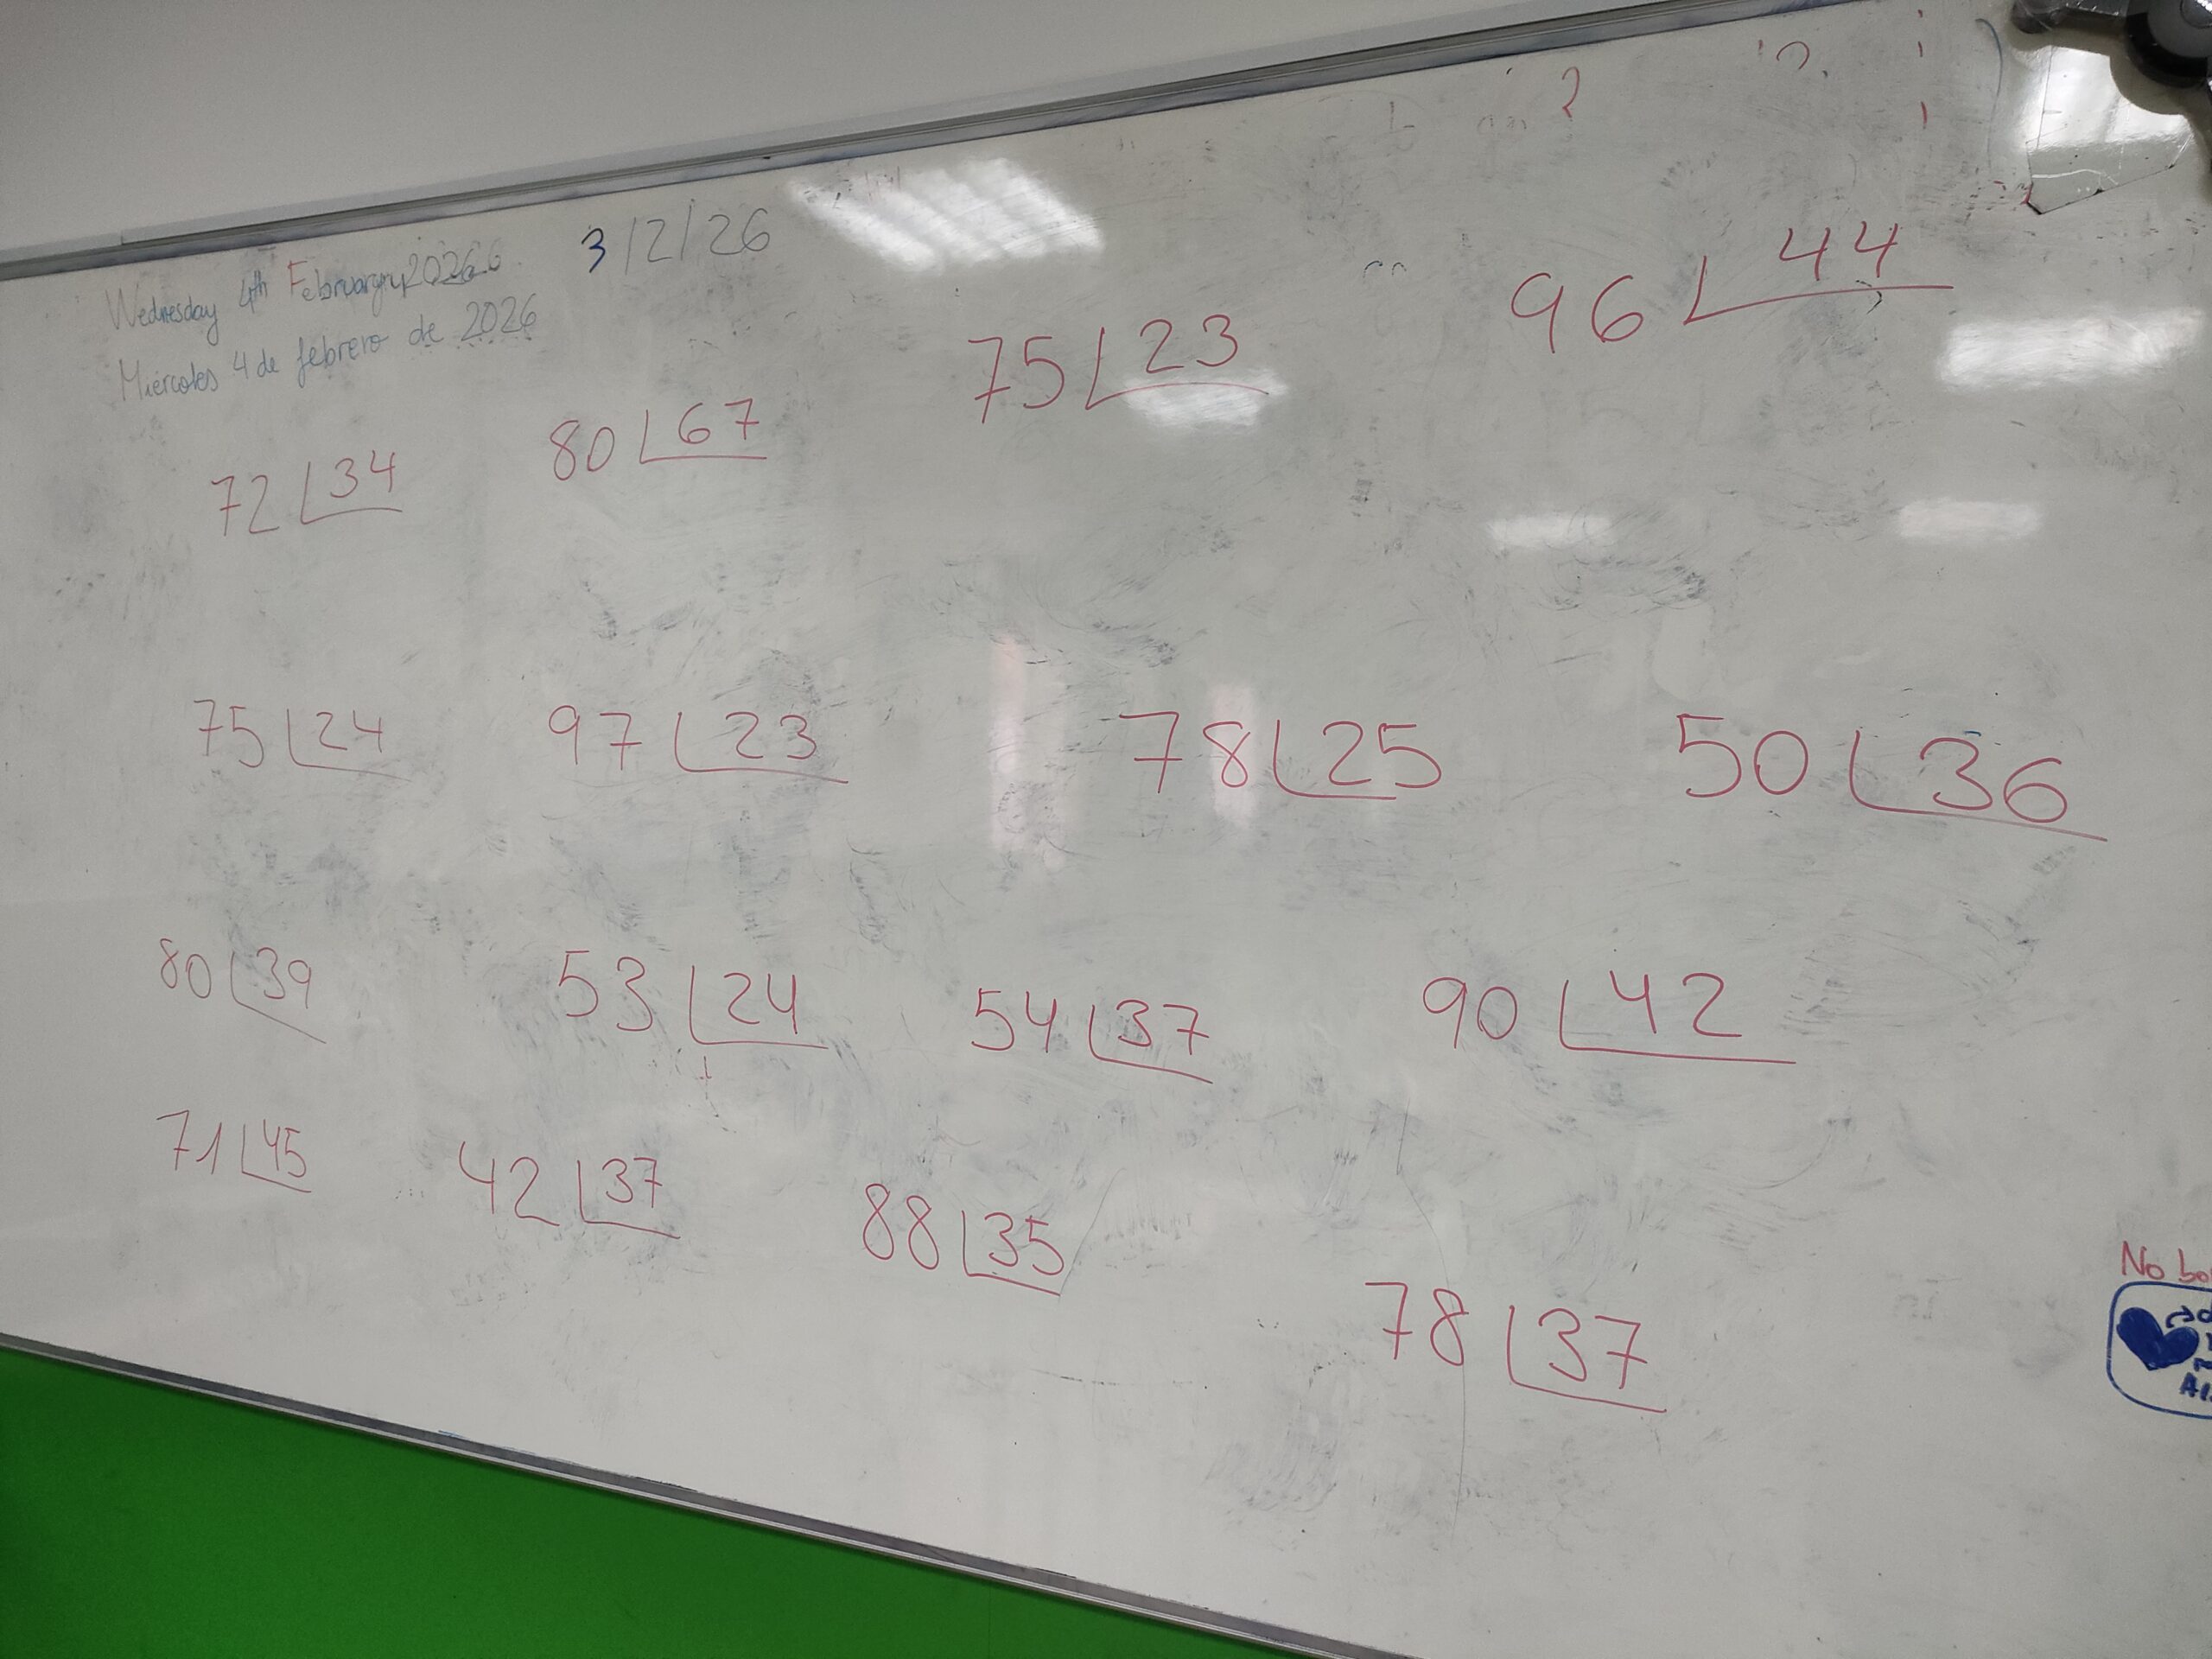 Wednesday 4th February 2026
3/2/26
Miércoles 4 de febrero de 2026
72 34
80 67
75 23
96 44
75 24
97 23
78 25
50 36
80 39
53 24
54 37
90 42
71 45
42 37
88 35
78 37
No